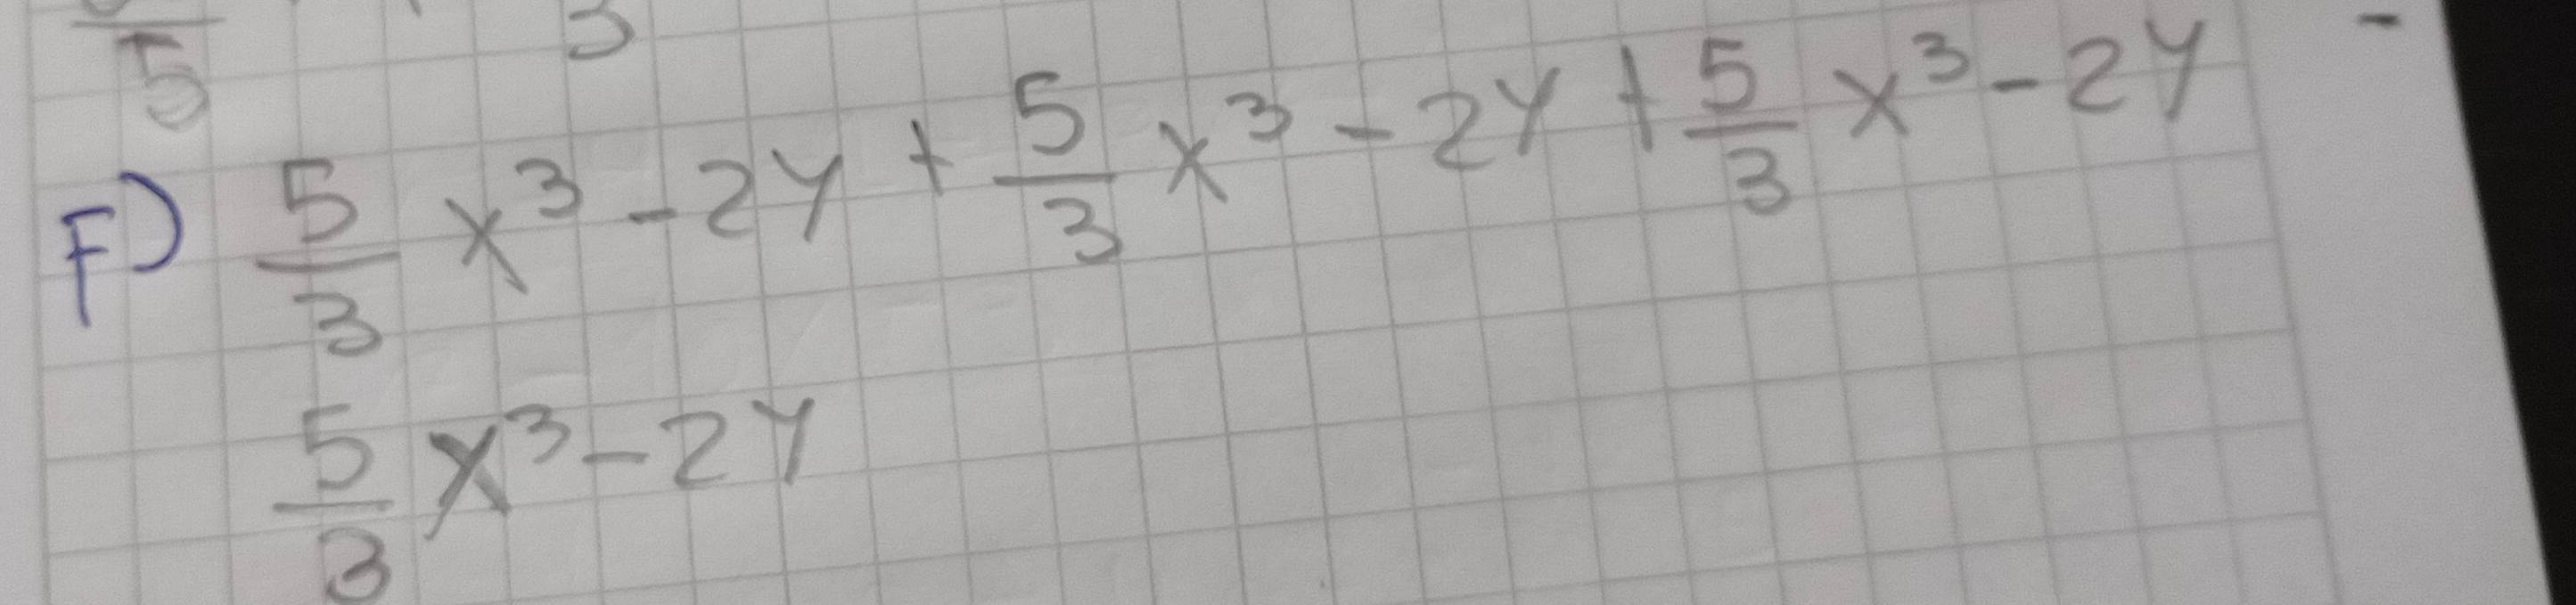 5 3
F) 5/3 x³ - 2y + 5/3 x³ - 2y + 5/3 x³ - 2y
5/3 x³ - 2y